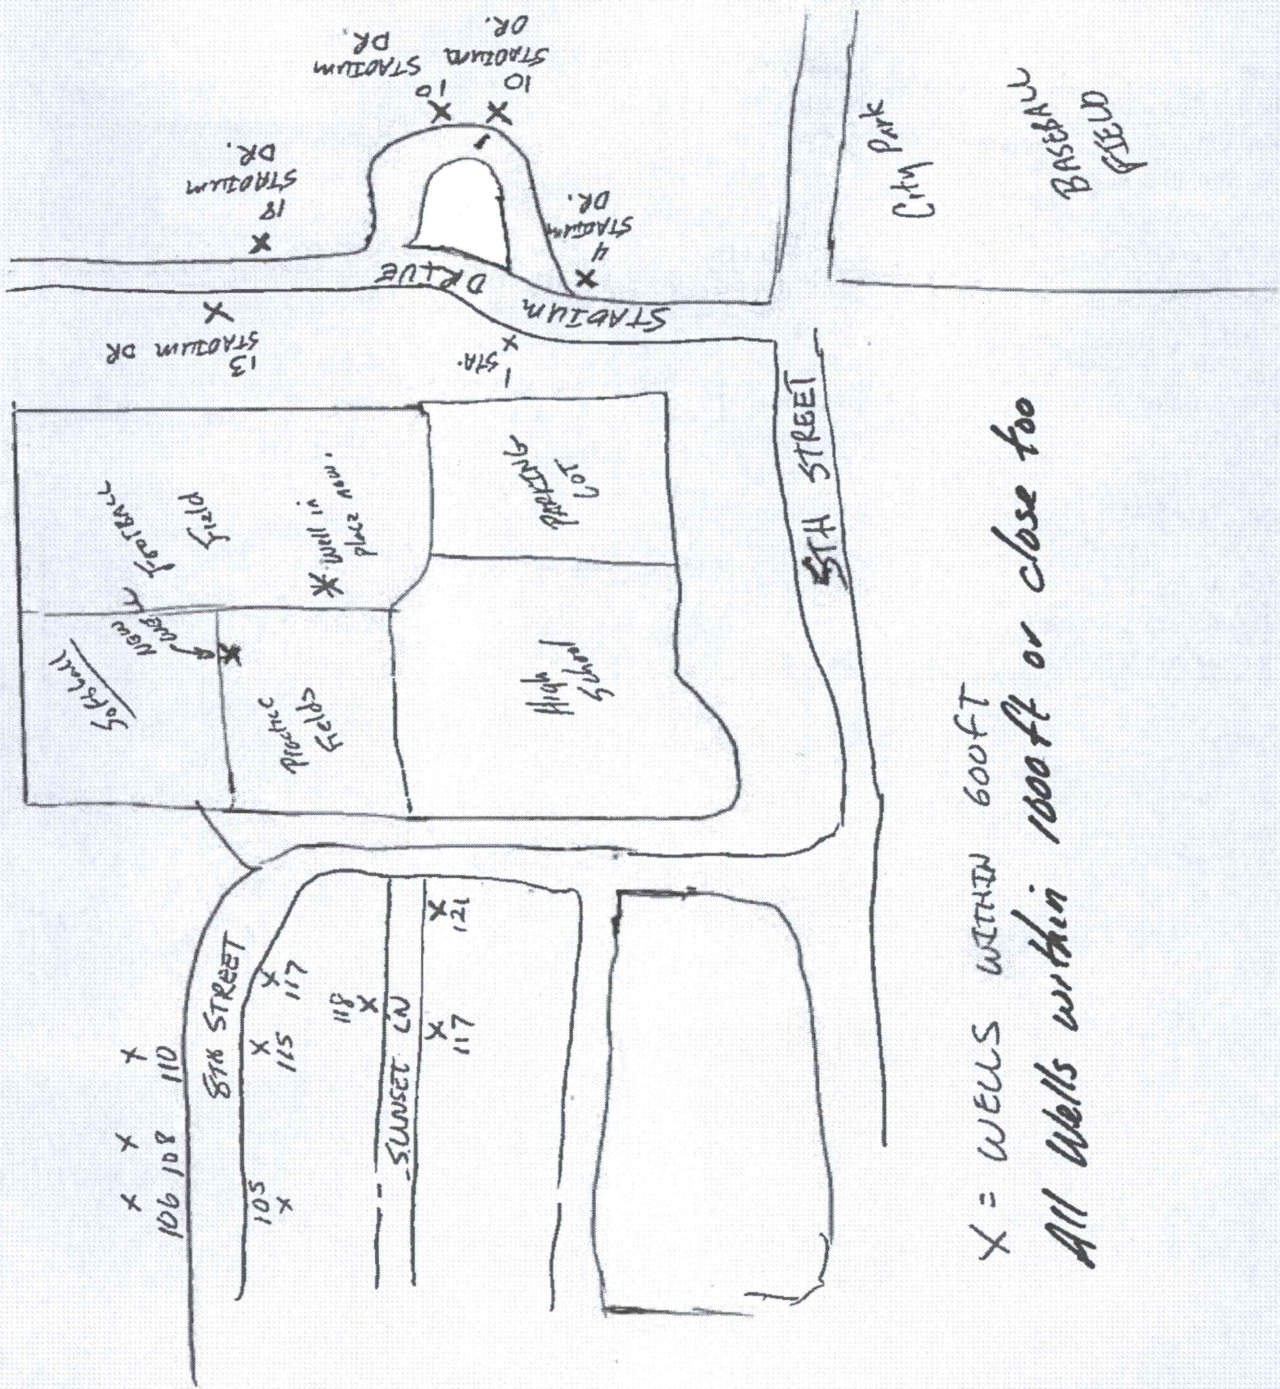 10
STADIUM
DR.
10
STADIUM
DR.
18
STADIUM
DR.
4
STADIUM
DR.
STADIUM DRIVE
13
STADIUM DR
1 STA.
City Park
BASEBALL
FIELD
PARKING
LOT
FOOTBALL
Field
Well in
place now.
New
well
Softball
Practice
Fields
High
School
5TH STREET
8TH STREET
SUNSET LN
121
117
118
117
115
110
108
106
105
X = WELLS WITHIN 600FT
All Wells within 1000ft or close too